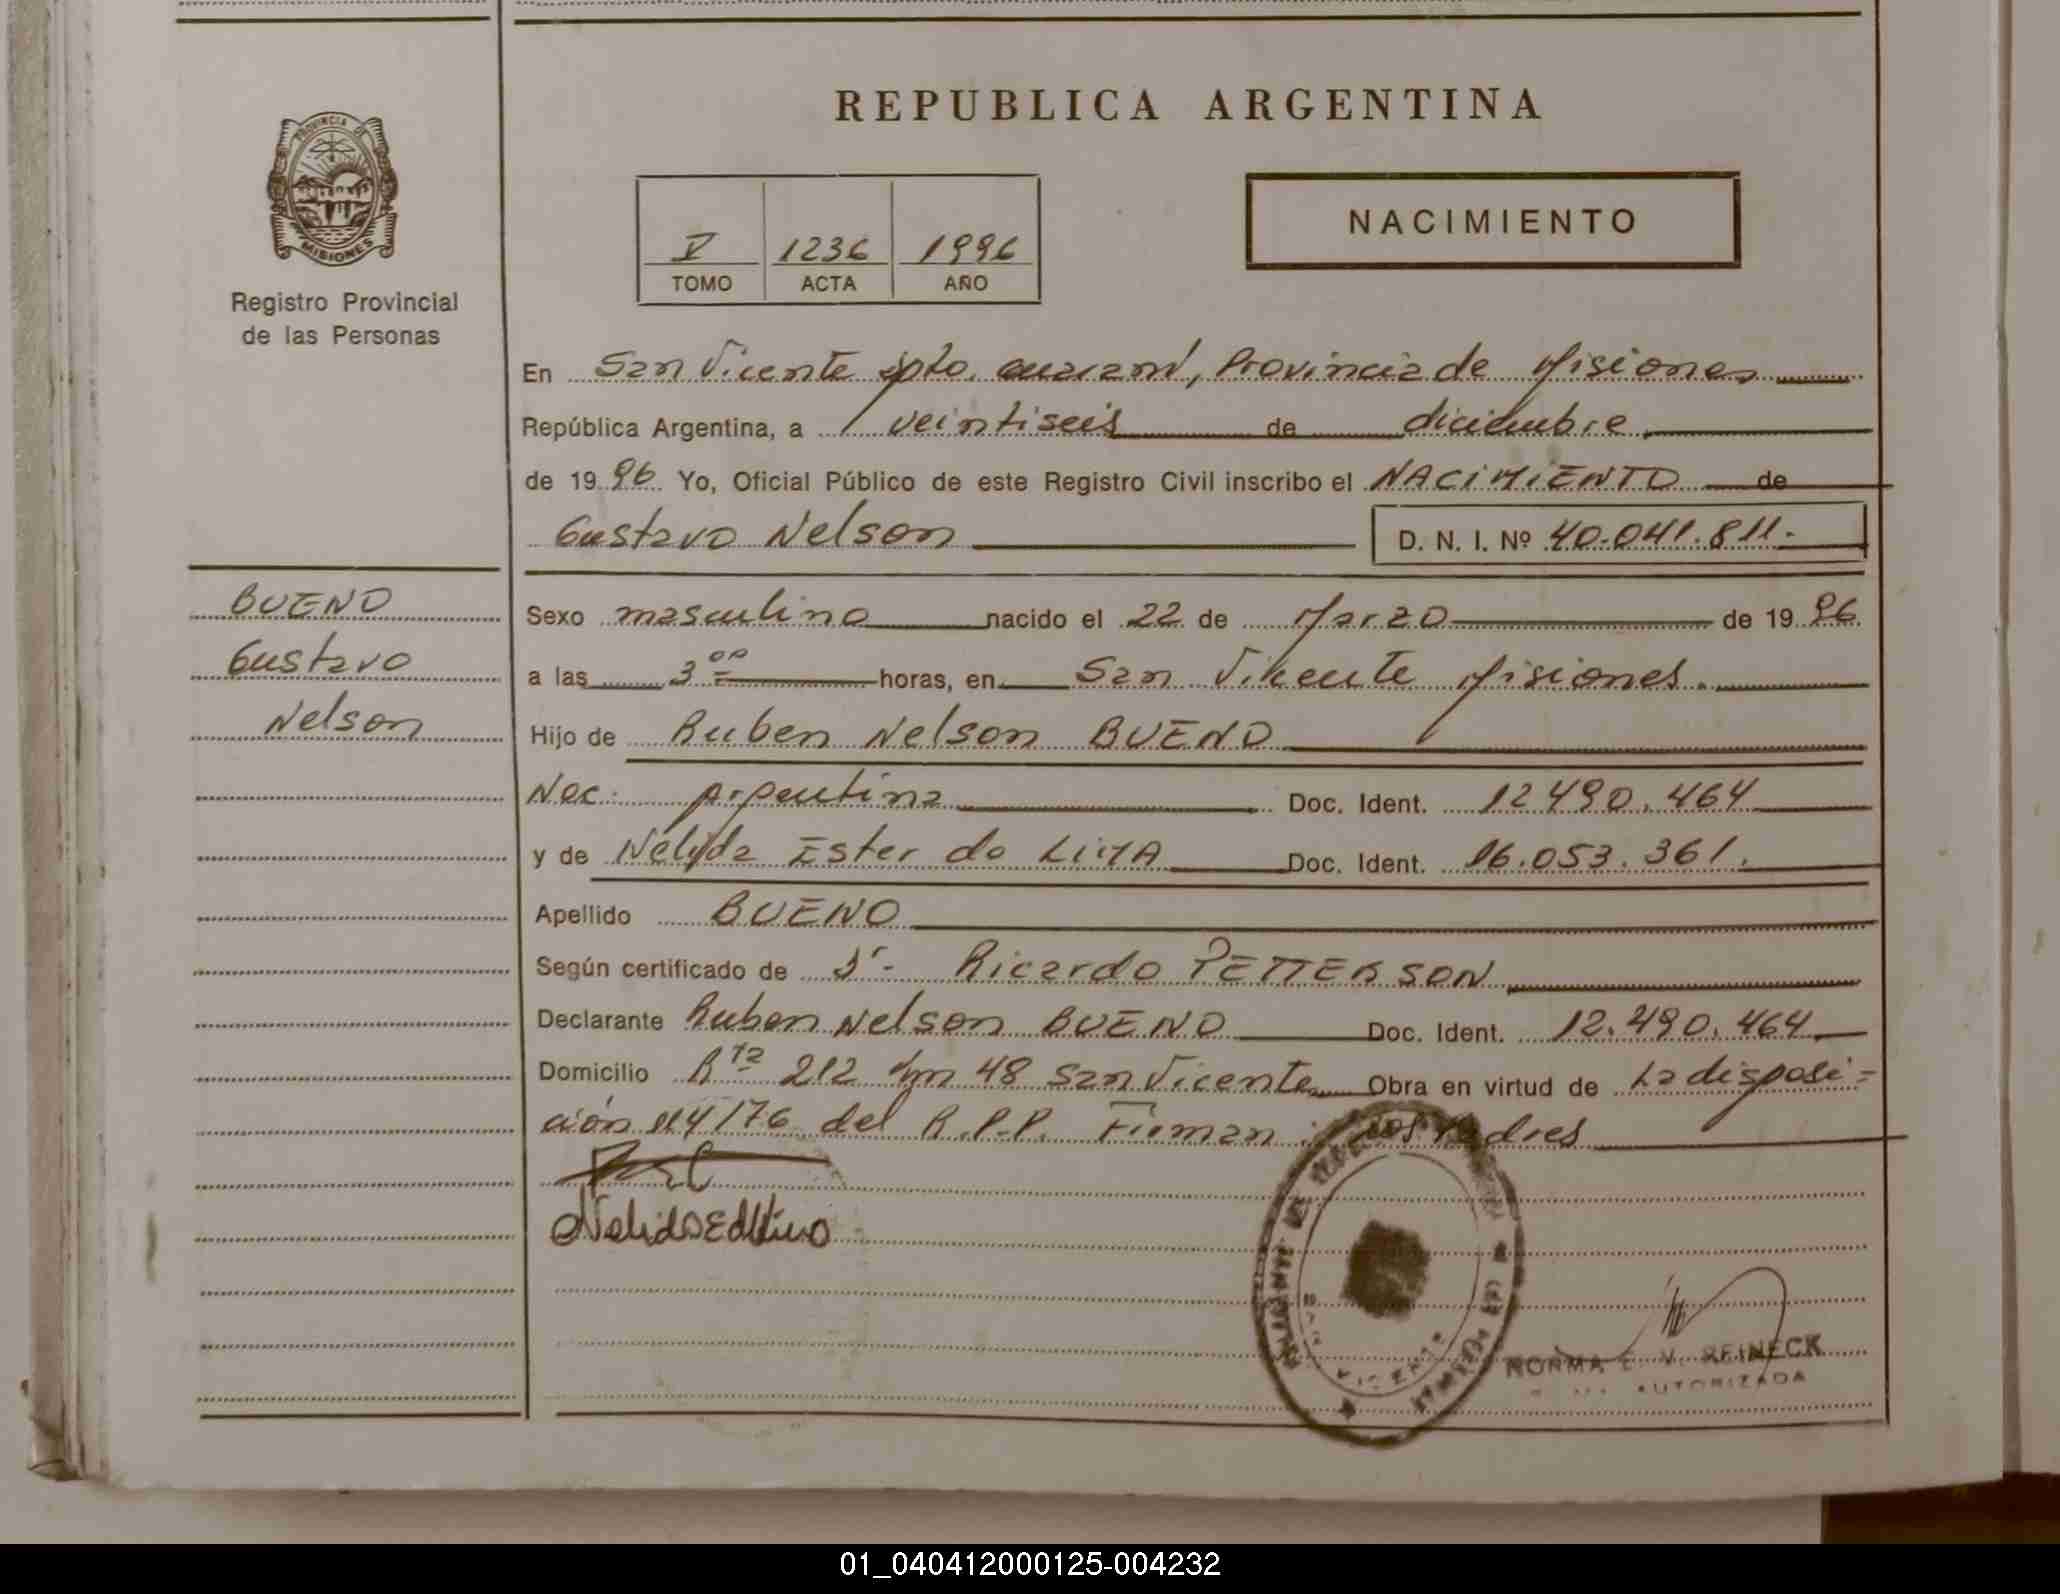 REPUBLICA ARGENTINA
PROVINCIA DE
MISIONES
Registro Provincial
de las Personas
V 1236 1996
TOMO ACTA AÑO
NACIMIENTO
En San Vicente dpto. Guaraní, Provincia de Misiones
República Argentina, a veintiseis de diciembre
de 1996 Yo, Oficial Público de este Registro Civil inscribo el NACIMIENTO de
Gustavo Nelson D. N. I. Nº 40.041.811.-
BUENO
Gustavo
Nelson
Sexo masculino nacido el 22 de Marzo de 1996
a las 3 00 horas, en San Vicente Misiones.
Hijo de Ruben Nelson BUENO
Nac. Argentina Doc. Ident. 12490.464
y de Nélyda Ester do LIMA Doc. Ident. 16.053.361.
Apellido BUENO
Según certificado de Dr.- Ricardo PETTERSON
Declarante Ruben Nelson BUENO Doc. Ident. 12.490.464
Domicilio Rta 212 Km 48 San Vicente Obra en virtud de La disposi=
ción 114/76 del R.P.P. Firman: los Padres
SAN VICENTE
NORMA E. V. REINECK
AUTORIZADA
01_040412000125-004232